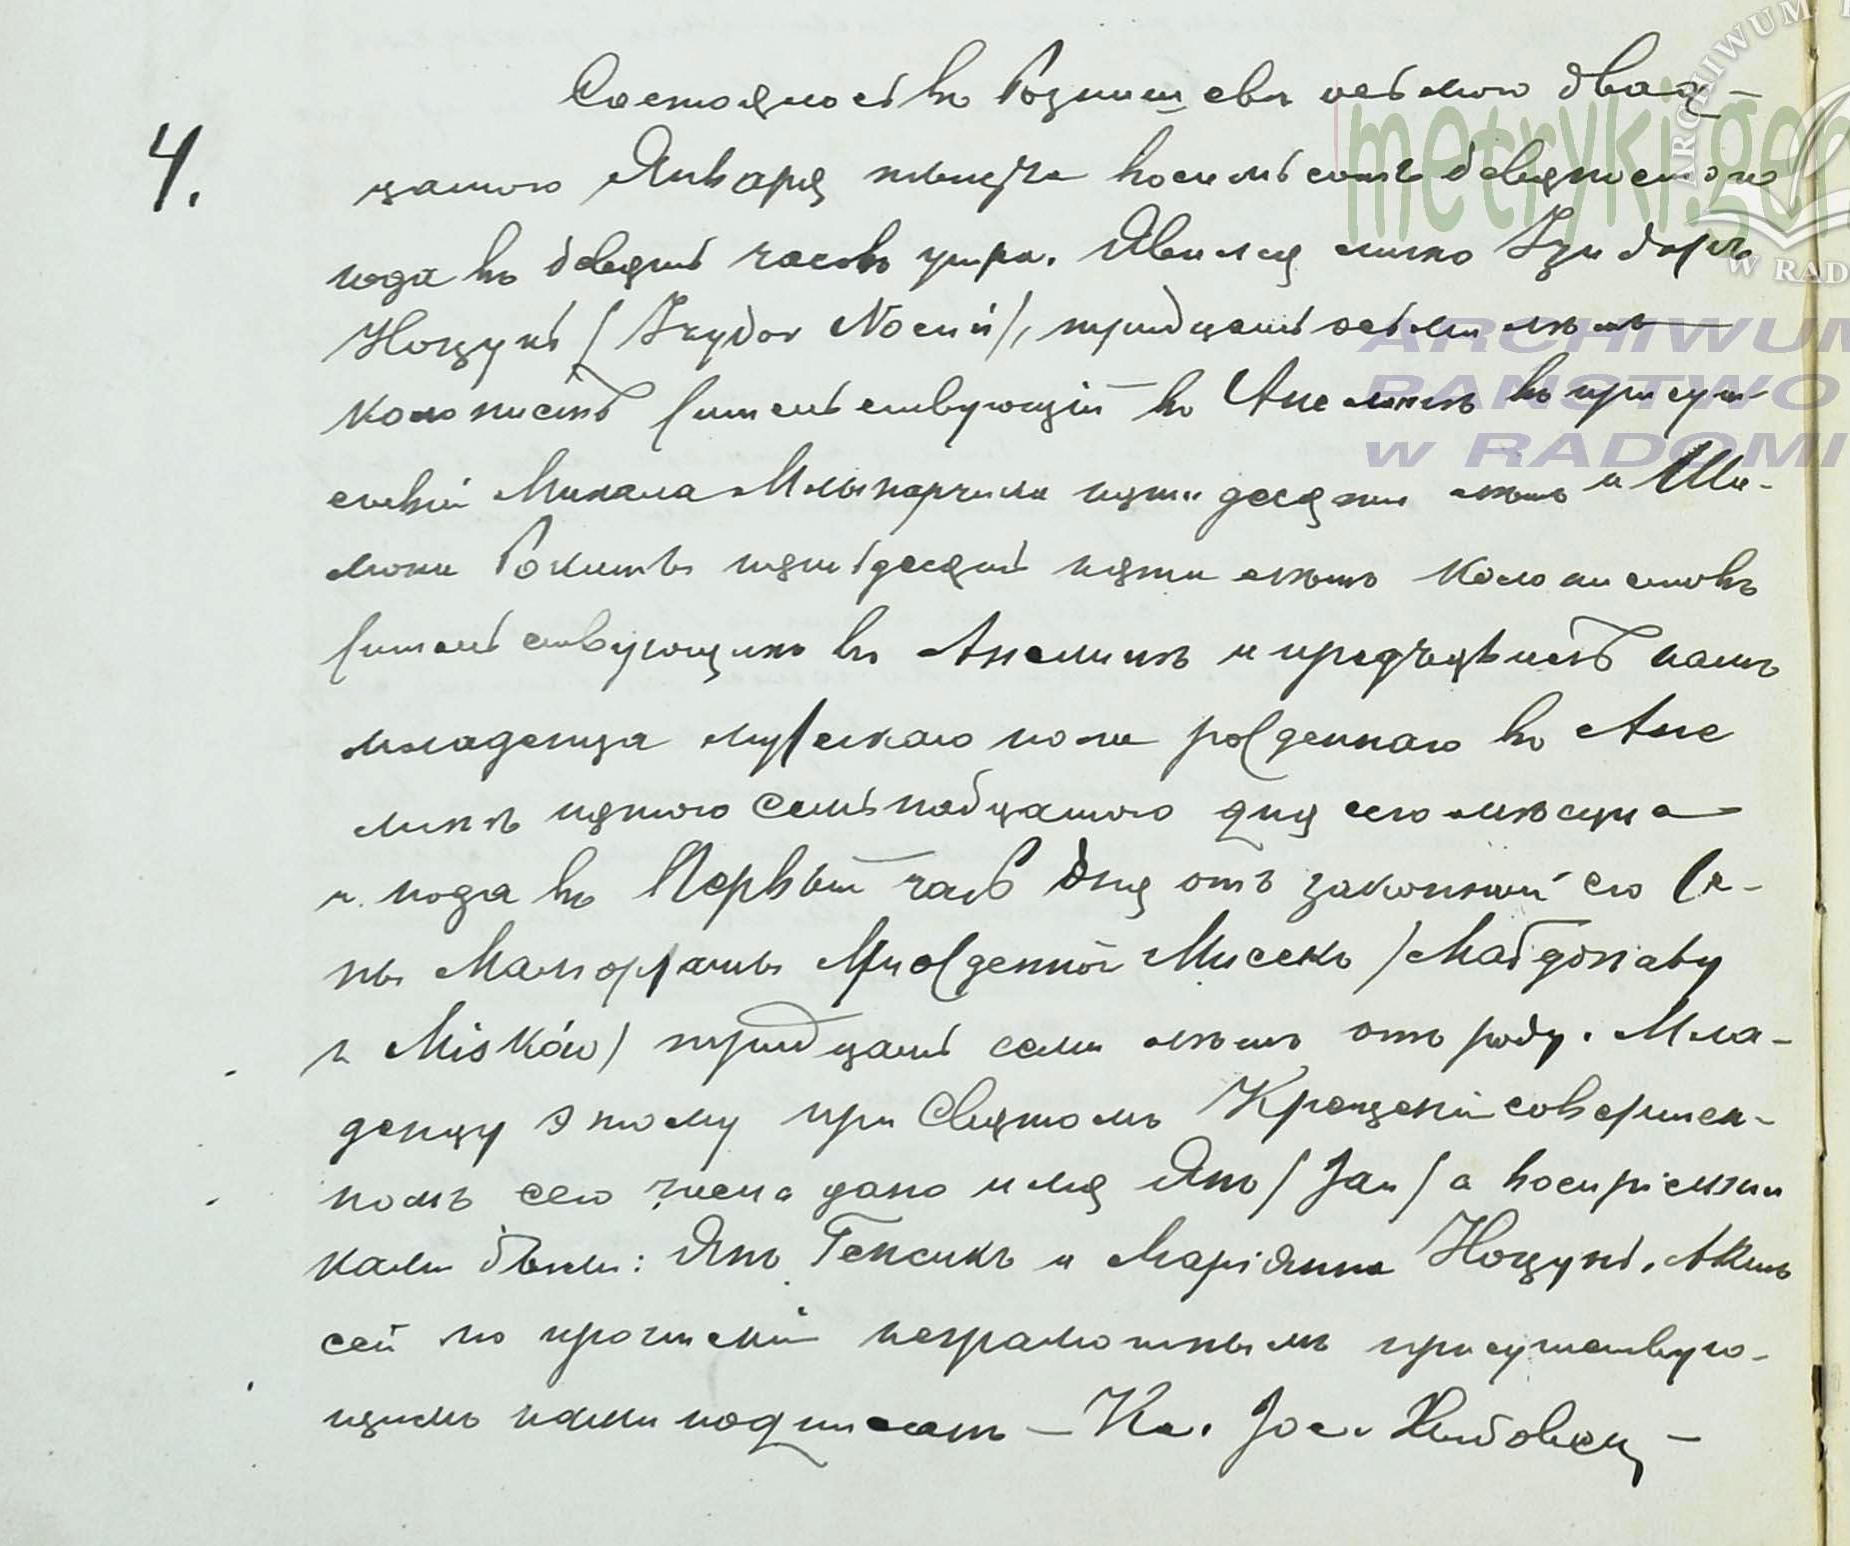 4.
Состоялось въ Рознишевѣ осьмого двад-
цатого Января тысяча восемьсотъ девяностого
года въ девять часовъ утра. Явился лично Изидоръ
Ноцунь (Izydor Nocuń), тридцать осьми лѣтъ
колонистъ жительствующій въ Анелинѣ въ присут-
ствіи Михала Млынарчика пятидесяти лѣтъ и Ши-
мона Рокиты пятьдесять пяти лѣтъ колонистовъ
жительствующихъ въ Анелинѣ и предъявилъ намъ
младенца мужескаго пола рожденнаго въ Ане
линѣ пятого семьнадцатого дня сего мѣсяца
и года въ Первый часъ дня отъ законной его Же-
ны Малгоржаты Урожденной Мисекъ /Małgorzaty
z Misków/ тридцать семи лѣтъ отъ роду. Мла-
денцу этому при Святомъ Крещеніи совершен-
номъ сего числа дано имя Янъ / Jan / а воспріемни
ками были: Янъ и Маріянна Ноцунь. Актъ
сей по прочтеніи неграмотнымъ присутствую-
щимъ нами подписанъ - Кс. Jос.
metryki.gen
ARCHIWUM
W RAD
ARCHIWUM
PAŃSTWO
w RADOMI